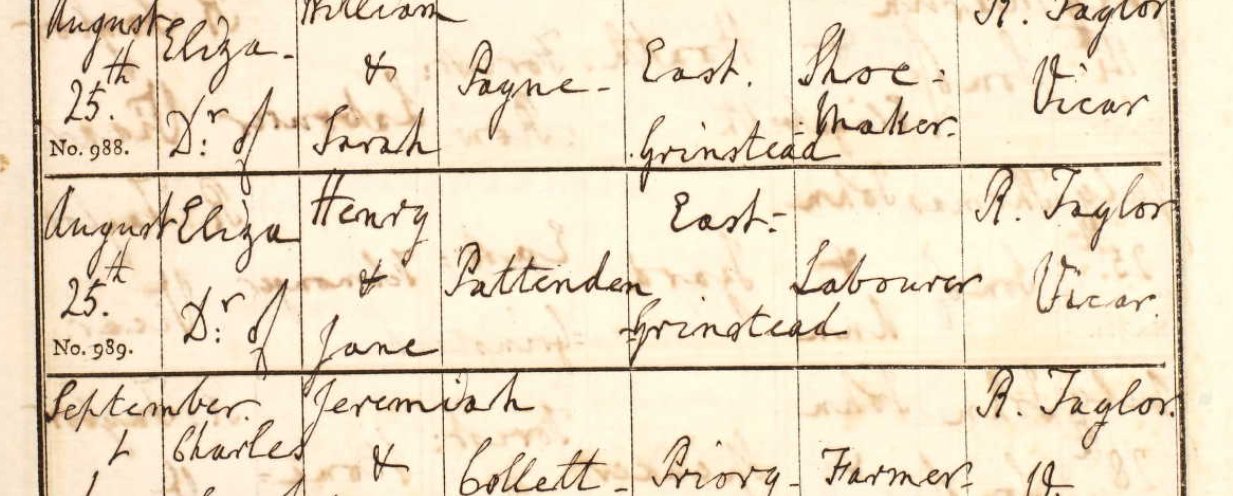 August
25.th
No. 988.
Eliza-
D.r of
William
&
Sarah
Payne-
East.
Grinstead
Shoe-
Maker.
R. Taylor
Vicar
August
25.th
No. 989.
Eliza
D.r of
Henry
&
Jane
Pattenden
East-
Grinstead
Labourer
R. Taylor
Vicar.
September.
Charles
Jeremiah
&
Collett-
Priory-
Farmer-
R. Taylor.